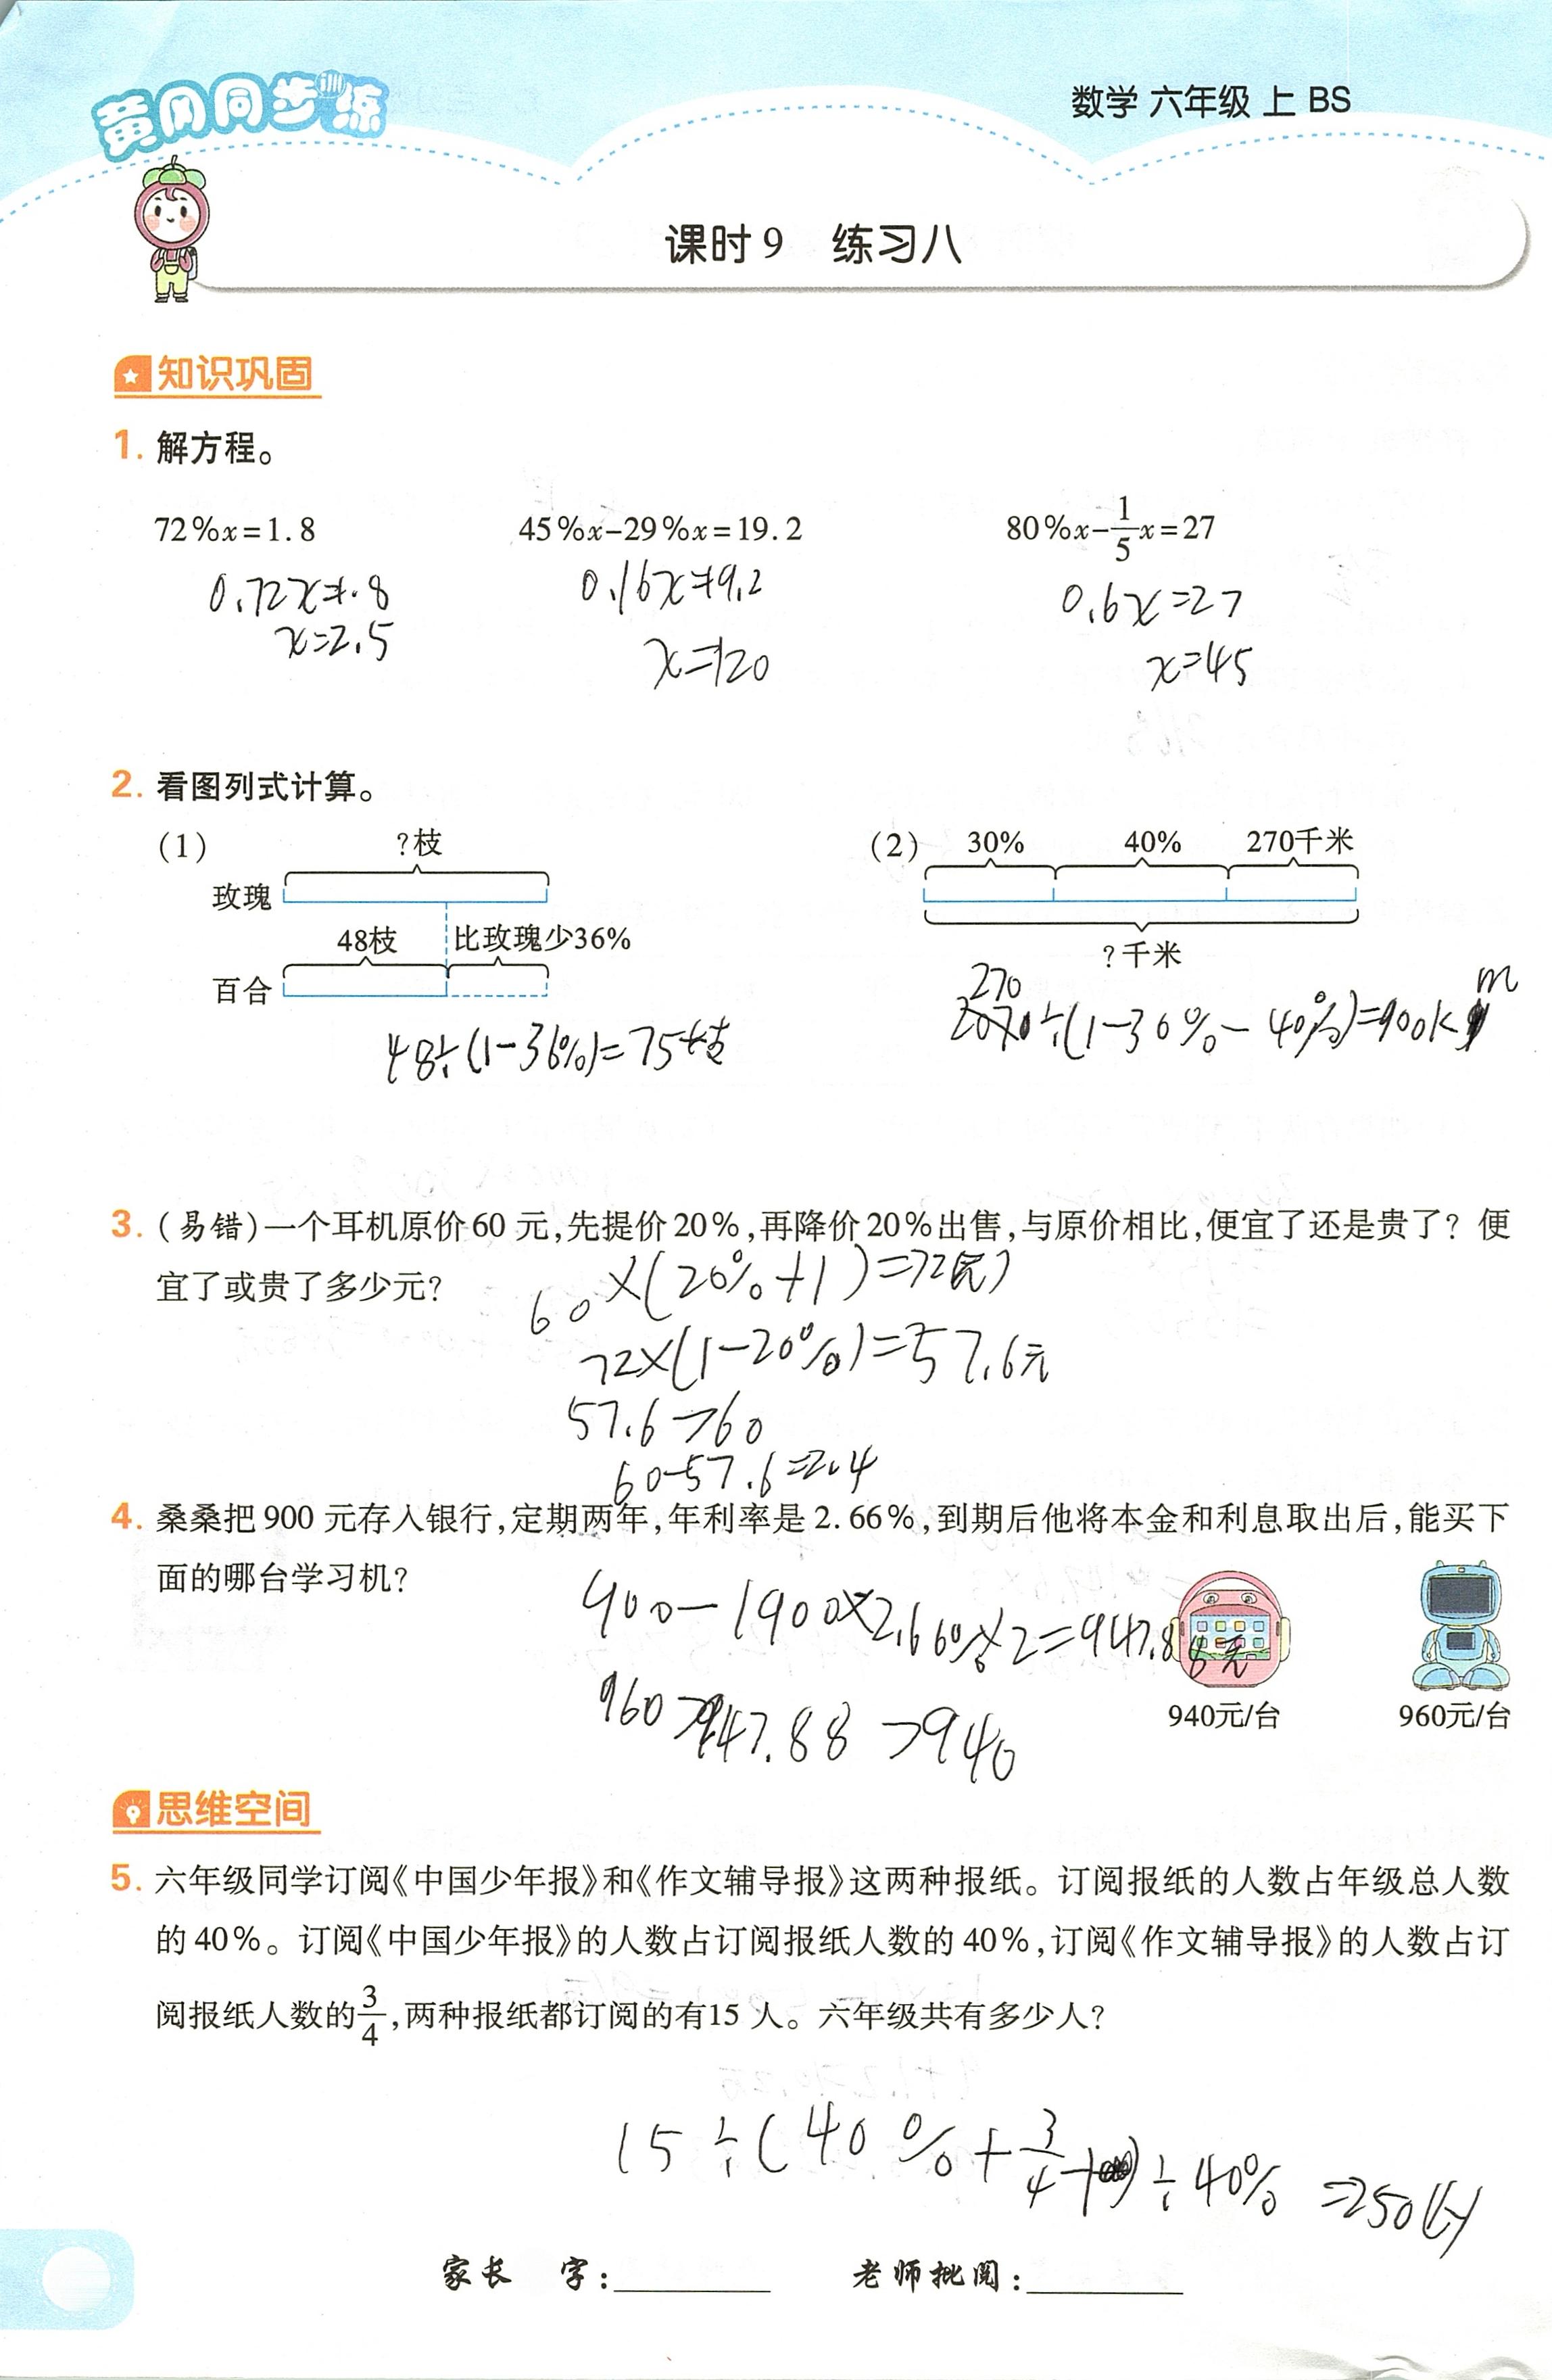 黄冈同步训练
数学 六年级 上 BS
课时9 练习八
知识巩固
1. 解方程。
72%x=1.8 45%x-29%x=19.2 80%x-1/5x=27
0.72x=1.8 0.16x=19.2 0.6x=27
x=2.5 x=120 x=45
2. 看图列式计算。
(1) ?枝 (2) 30% 40% 270千米
玫瑰
48枝 比玫瑰少36%
?千米
百合
270
48÷(1-36%)=75枝 ÷(1-30%-40%)=900km
3. (易错)一个耳机原价60元,先提价20%,再降价20%出售,与原价相比,便宜了还是贵了?便
宜了或贵了多少元?
60×(20%+1)=72(元)
72×(1-20%)=57.6元
57.6>60
60-57.6=2.4
4. 桑桑把900元存入银行,定期两年,年利率是2.66%,到期后他将本金和利息取出后,能买下
面的哪台学习机?
900-1900×2.66%×2=947.88元
960>947.88>940
940元/台 960元/台
思维空间
5. 六年级同学订阅《中国少年报》和《作文辅导报》这两种报纸。订阅报纸的人数占年级总人数
的40%。订阅《中国少年报》的人数占订阅报纸人数的40%,订阅《作文辅导报》的人数占订
阅报纸人数的3/4,两种报纸都订阅的有15人。六年级共有多少人?
15÷(40%+3/4-1)÷40%=250(人)
家长 字: 老师批阅: